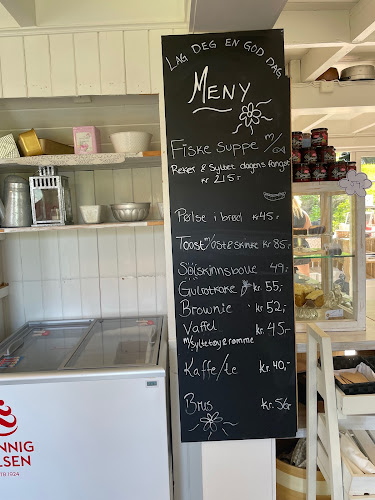 LAG DEG EN GOD DAG
MENY
Fiskesuppe m/
Reker & Syltet dagens fangst
kr 215.-
Pølse i brød kr 45.-
Toast m/ost & skinke kr 85.-
Solskinnsbolle 49.-
Gulrotkake kr. 55,-
Brownie kr. 52,-
Vaffel kr. 45.-
m/syltetøy & rømme
Kaffe/te kr. 40,-
Brus kr. 45,-
NNIG
LSEN